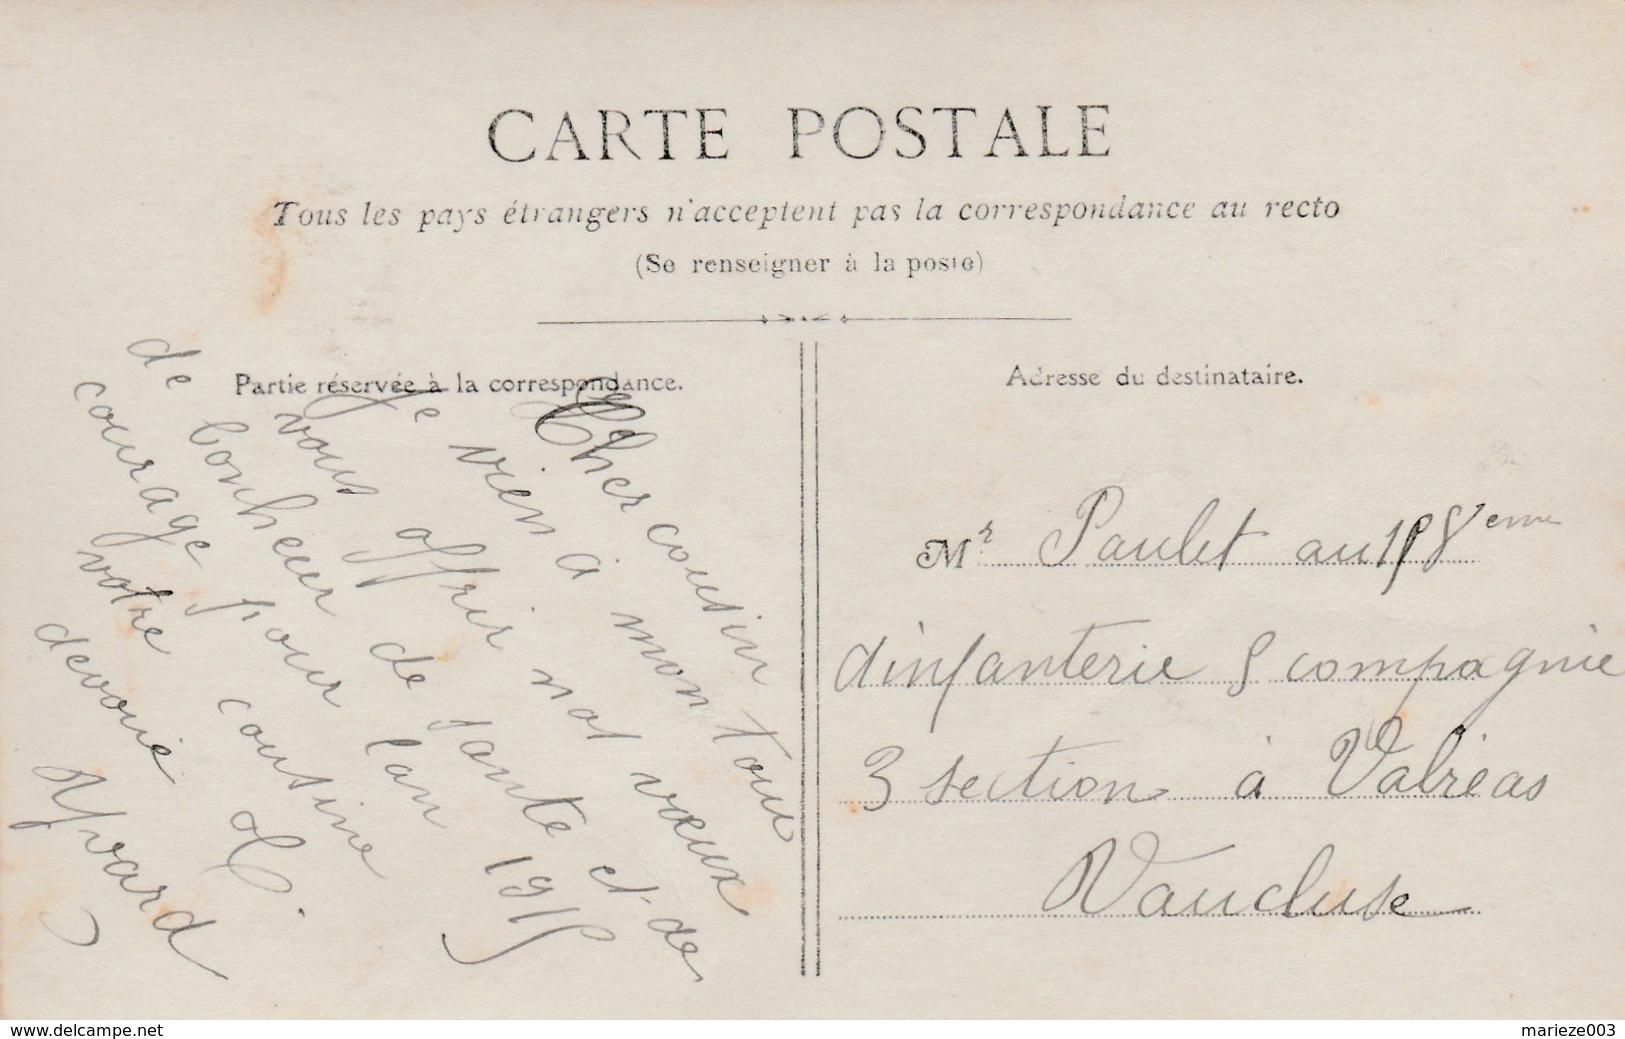 CARTE POSTALE
Tous les pays étrangers n'acceptent pas la correspondance au recto
(Se renseigner à la poste)
Partie réservée à la correspondance.
Adresse du destinataire.
Cher cousin
Je vien à mon tour
vous offrir nos vœux
de bonheur de santé et de
courage pour lan 1915
votre cousine
devouie L.
Yvard
Mr Paulet au 118eme
dinfanterie 8 compagnie
3 section à Valréas
Vaucluse
www.delcampe.net
marieze003